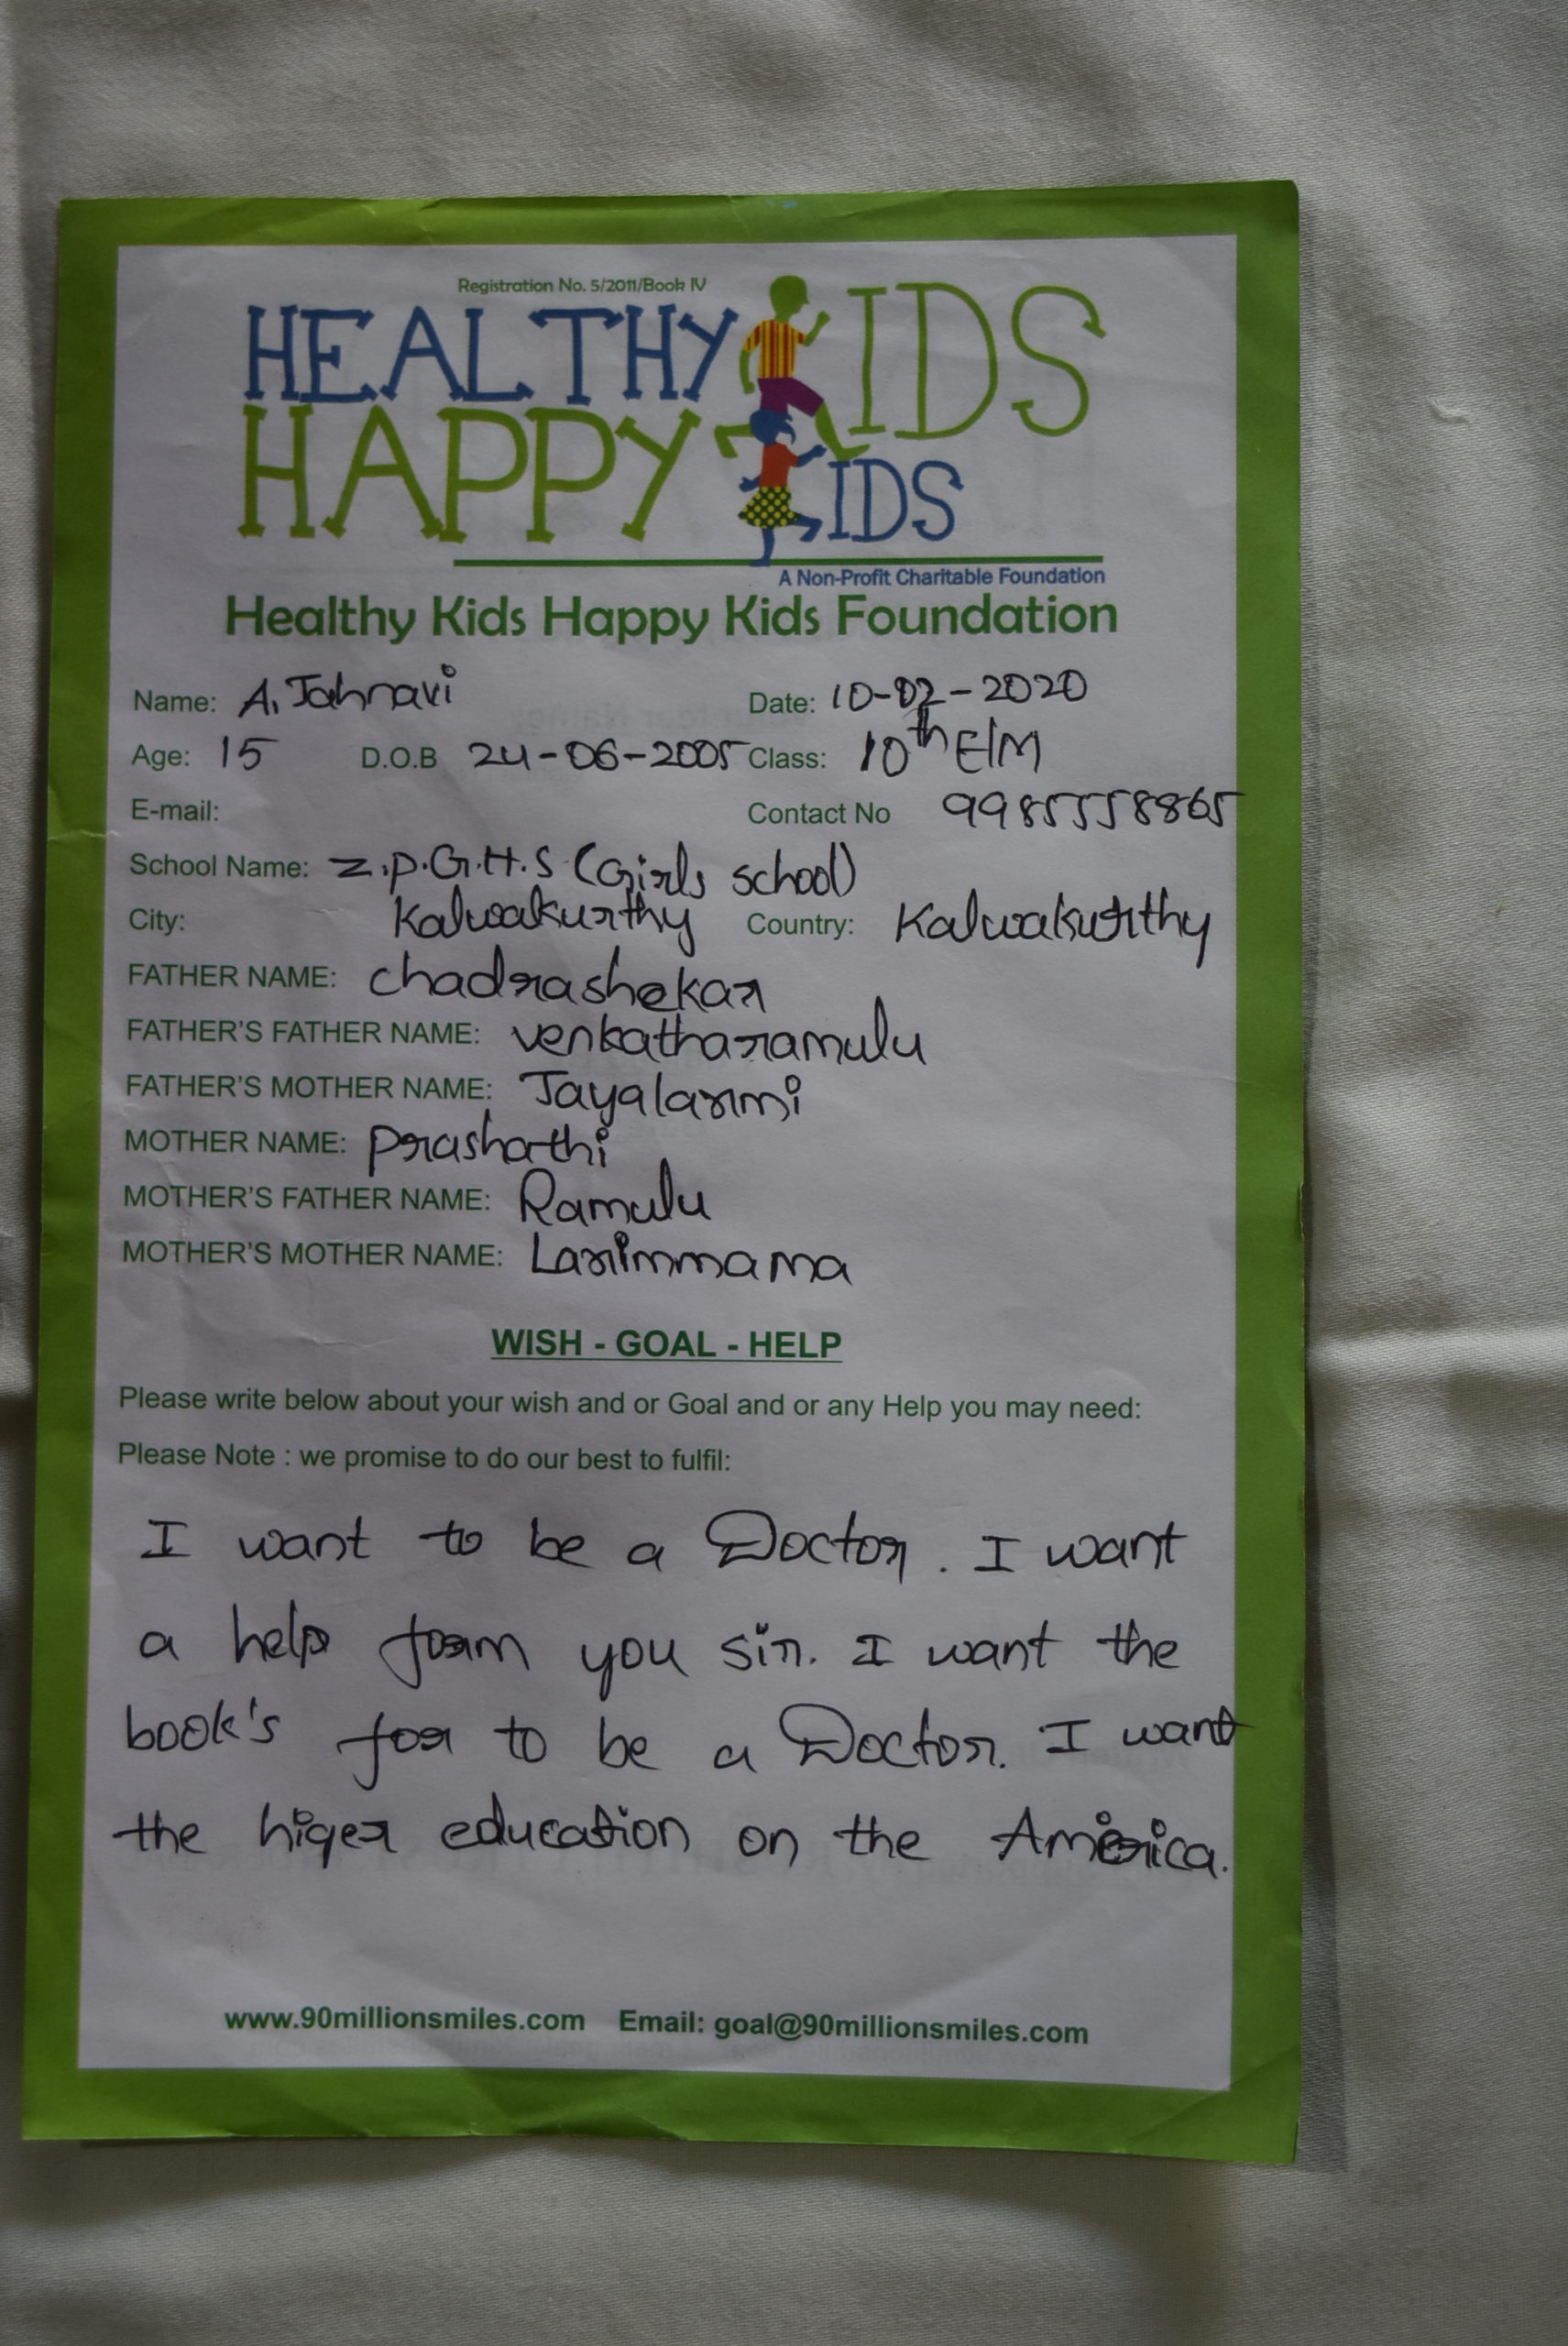 Registration No. 5/2011/Book IV
HEALTHY KIDS
HAPPY KIDS
A Non-Profit Charitable Foundation
Healthy Kids Happy Kids Foundation
Name: A. Jahnavi Date: 10-02-2020
Age: 15 D.O.B 24-06-2005 Class: 10th E/M
E-mail: Contact No 9985558865
School Name: Z.P.G.H.S (Girls school)
City: Kalwakurthy Country: Kalwakurthy
FATHER NAME: chadrashekar
FATHER'S FATHER NAME: venkatharamulu
FATHER'S MOTHER NAME: Jayalaxmi
MOTHER NAME: prashathi
MOTHER'S FATHER NAME: Ramulu
MOTHER'S MOTHER NAME: Laximmama
WISH - GOAL - HELP
Please write below about your wish and or Goal and or any Help you may need:
Please Note : we promise to do our best to fulfil:
I want to be a Doctor. I want
a help foram you sir. I want the
book's for to be a Doctor. I want
the higer education on the America.
www.90millionsmiles.com Email: goal@90millionsmiles.com